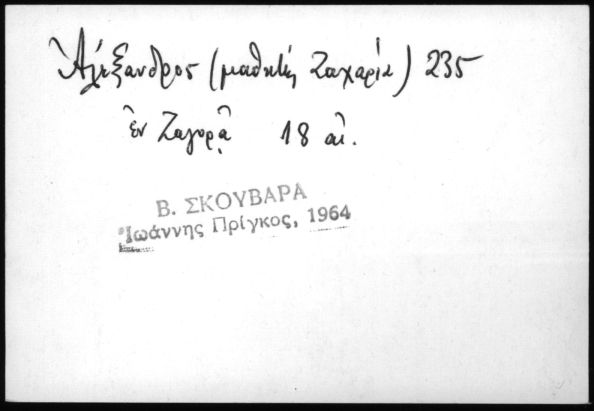 Ἀλέξανδρος (μαθητὴς Ζαχαρία) 235
ἐν Ζαγορᾷ 18 αἰ.
Β. ΣΚΟΥΒΑΡΑ
Ἰωάννης Πρίγκος, 1964